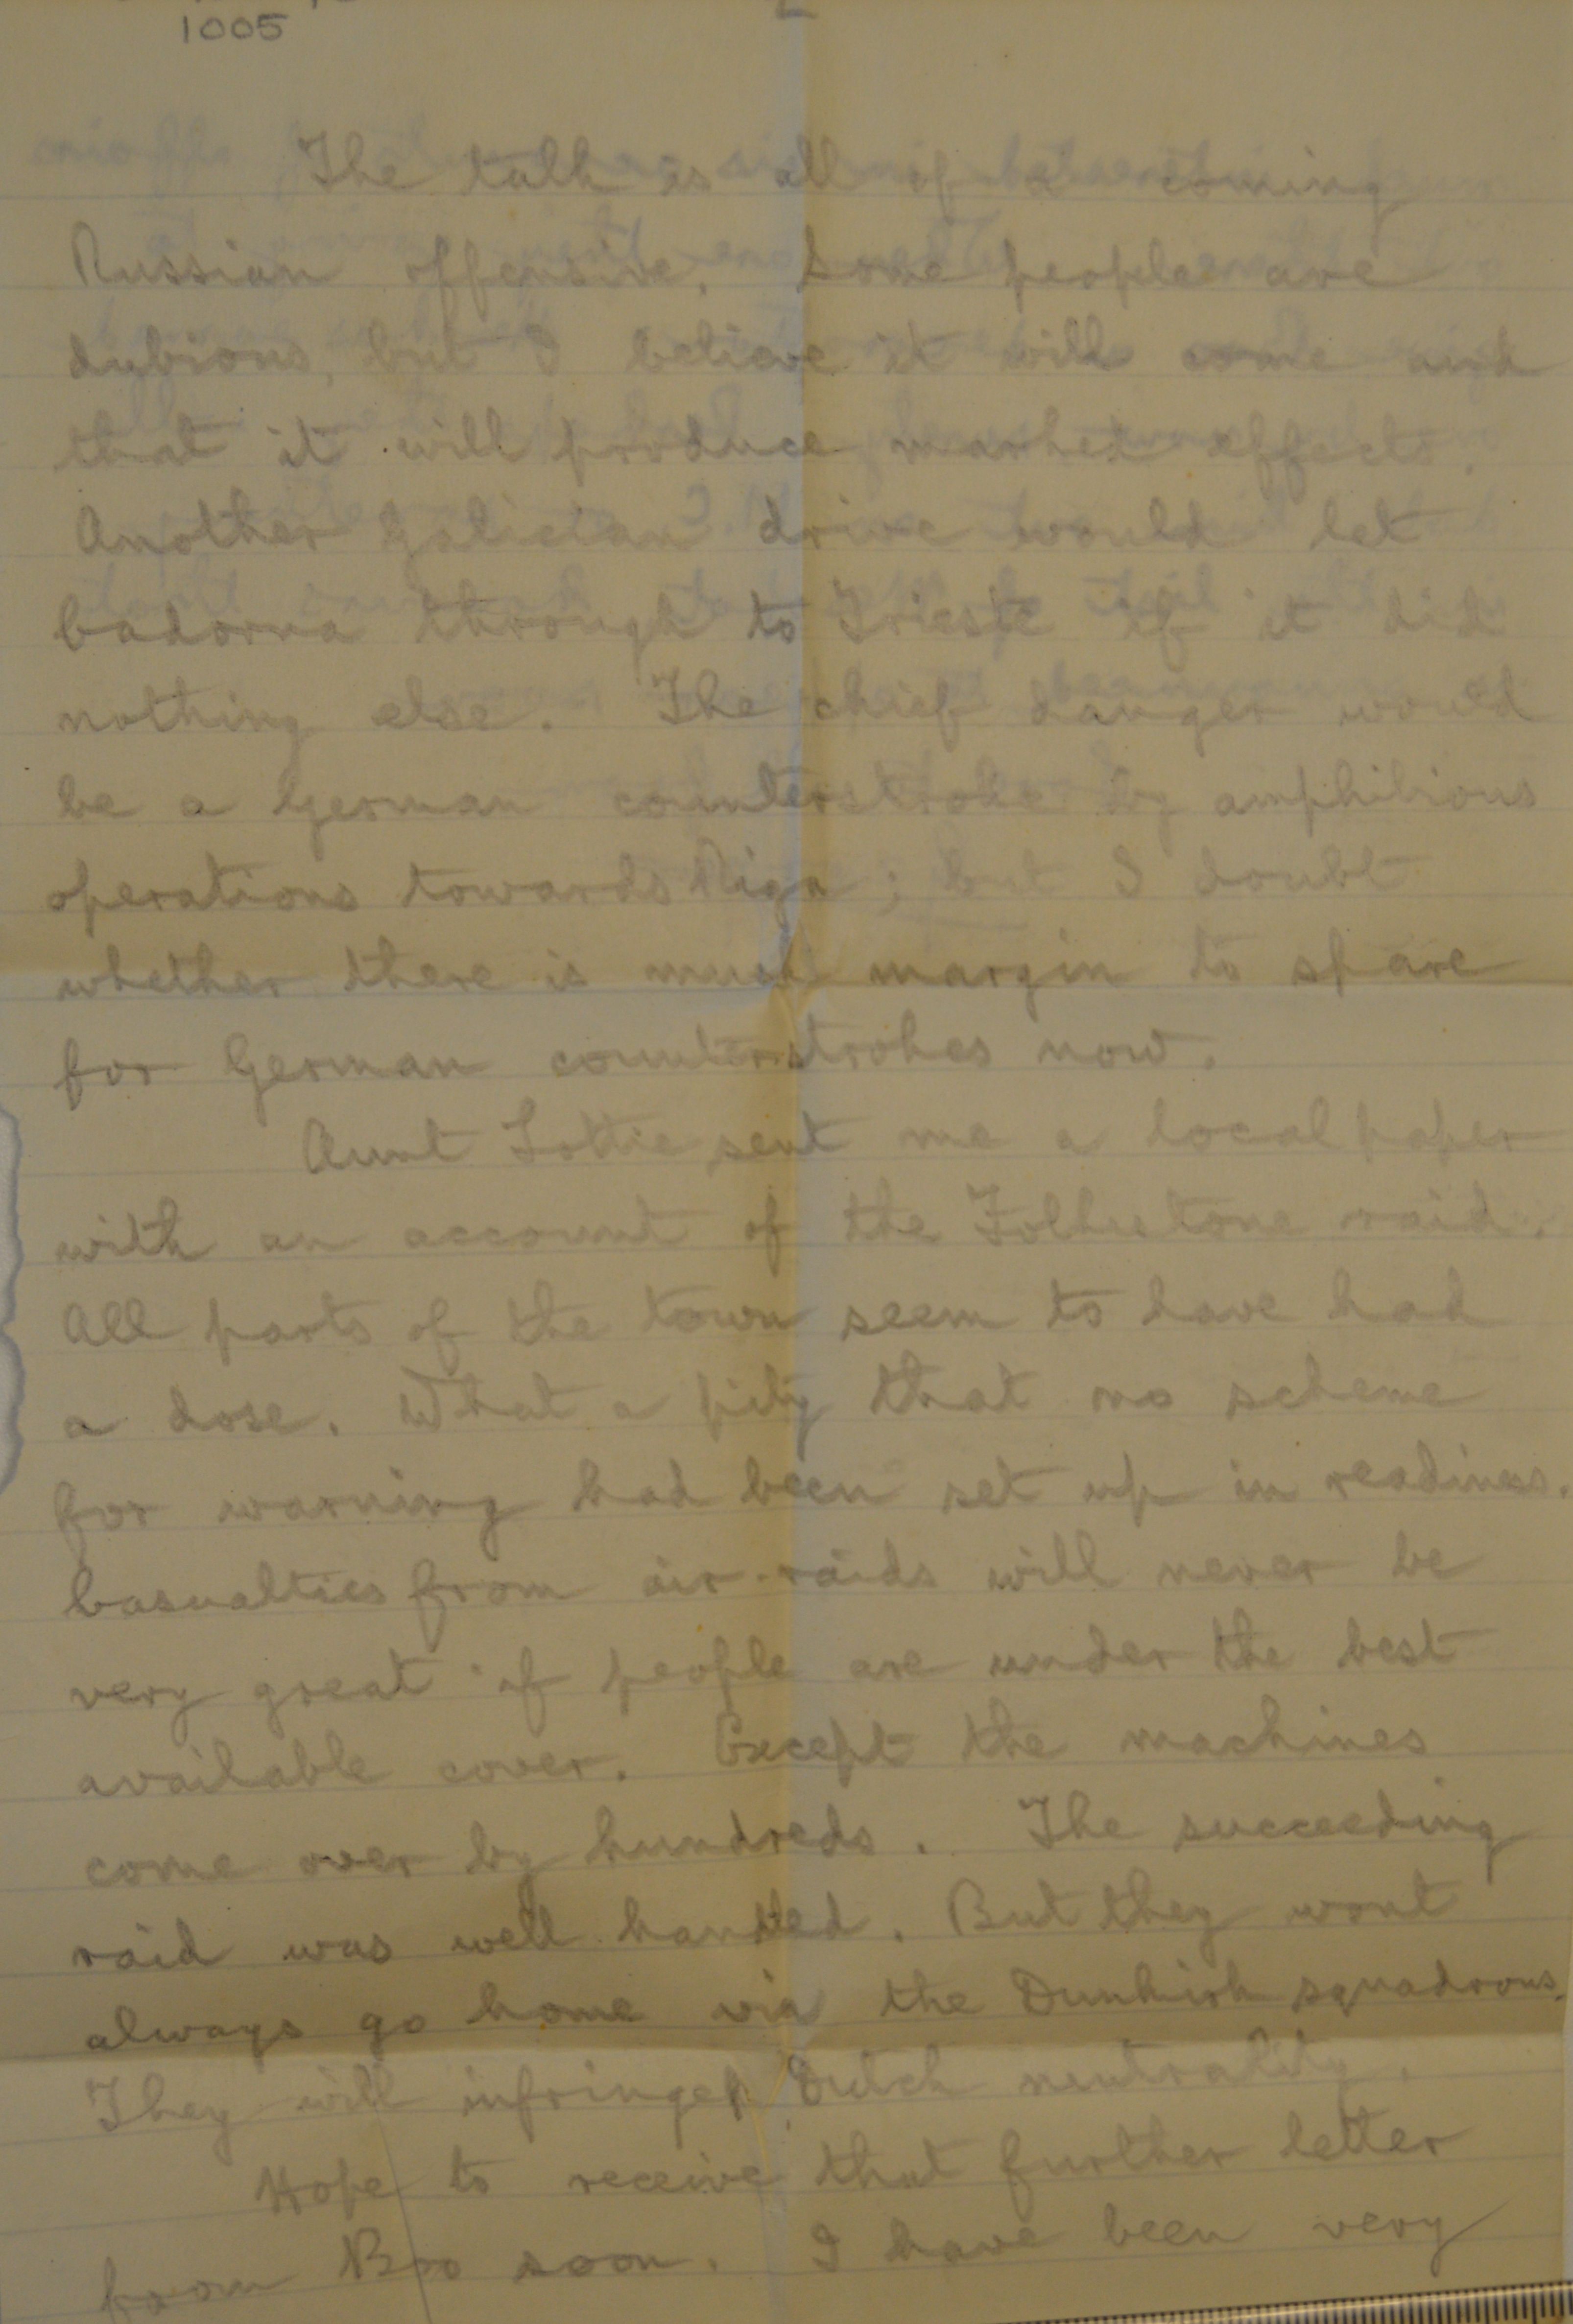 1005
The talk is all of a coming
Russian offensive. Some people are
dubious, but I believe it will come and
that it will produce marked effects.
Another Galician drive would let
Cadorna through to Trieste if it did
nothing else. The chief danger would
be a German counterstroke by amphibious
operations towards Riga; but I doubt
whether there is much margin to spare
for German counterstrokes now.
Aunt Lottie sent me a local paper
with an account of the Folkestone raid.
All parts of the town seem to have had
a dose. What a pity that no scheme
for warning had been set up in readiness.
Casualties from air-raids will never be
very great if people are under the best
available cover. Except the machines
come over by hundreds. The succeeding
raid was well handled. But they wont
always go home via the Dunkirk squadrons.
They will infringe Dutch neutrality.
Hope to receive that further letter
from Boo soon. I have been very